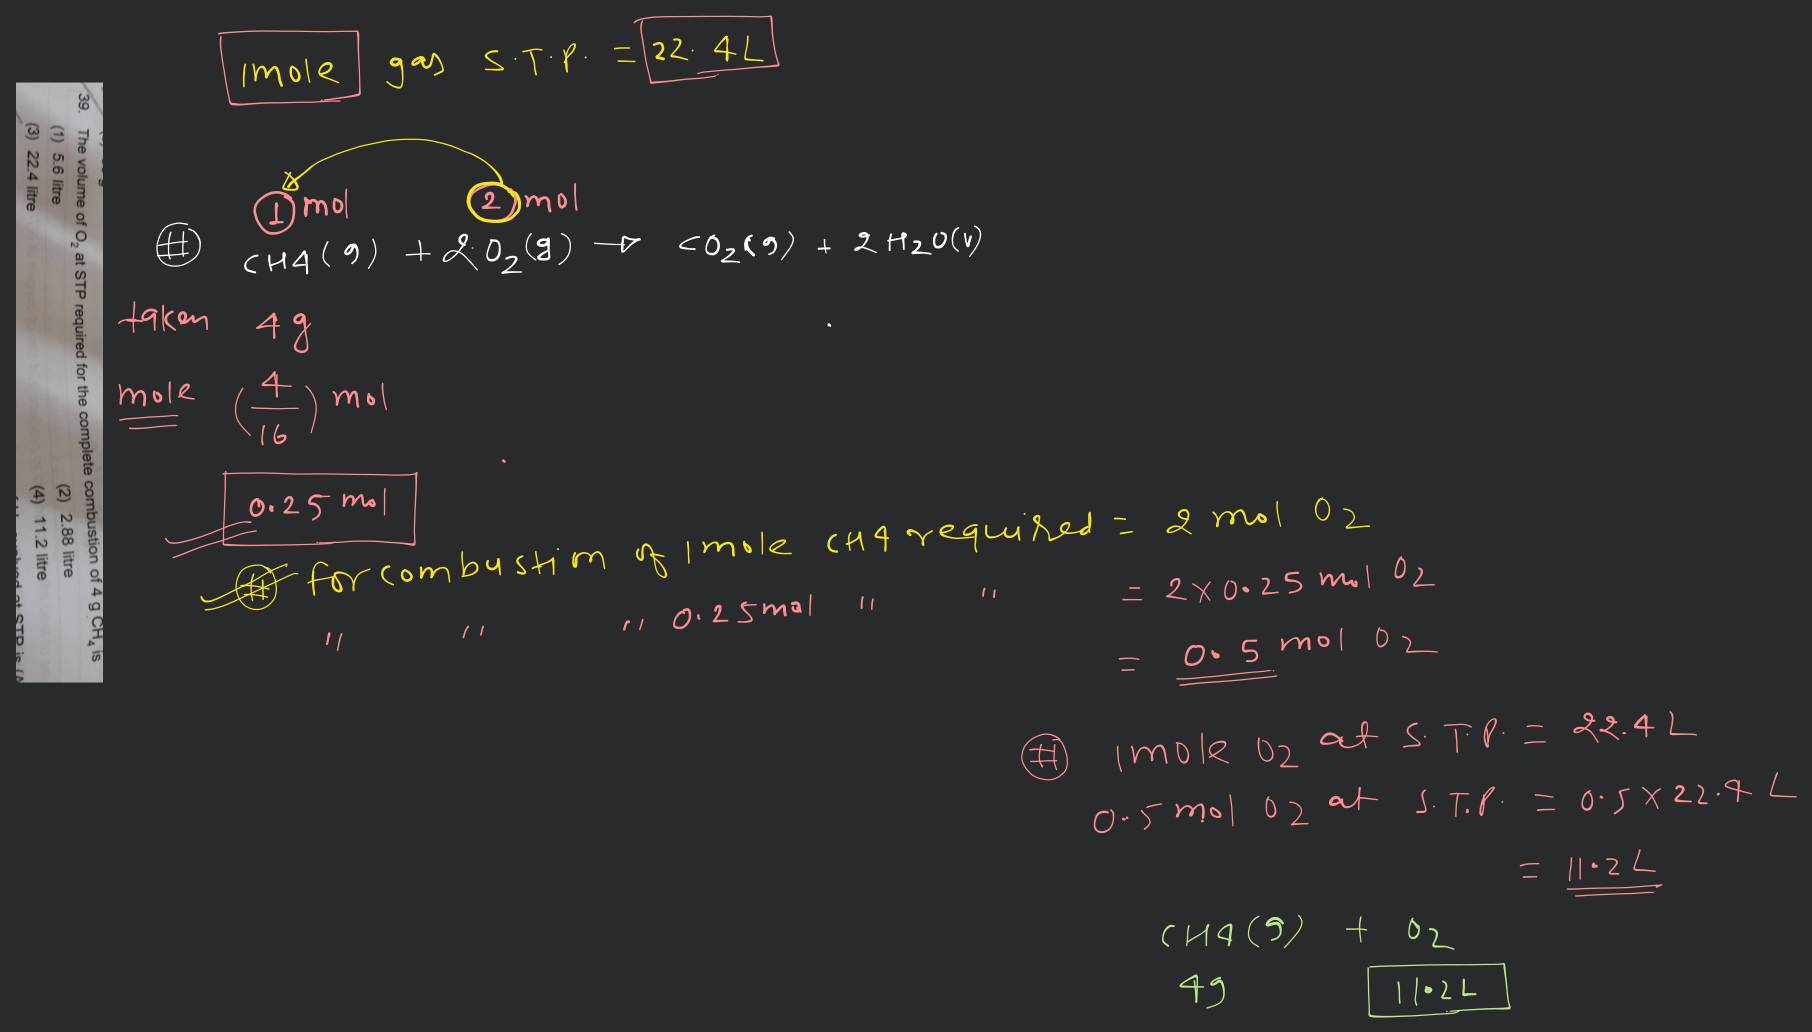 1mole gas S.T.P. = 22.4L
1 mol 2 mol
# CH4(g) + 2O2(g) → CO2(g) + 2H2O(v)
taken 4g
mole (4/16) mol
0.25 mol
# for combustion of 1mole CH4 required = 2 mol O2
" " " 0.25mol " " = 2×0.25 mol O2
= 0.5 mol O2
# 1mole O2 at S.T.P. = 22.4 L
0.5 mol O2 at S.T.P. = 0.5×22.4 L
= 11.2 L
CH4(g) + O2
4g 11.2L
39. The volume of O₂ at STP required for the complete combustion of 4 g CH₄ is
(1) 5.6 litre (2) 2.88 litre
(3) 22.4 litre (4) 11.2 litre
at STP is